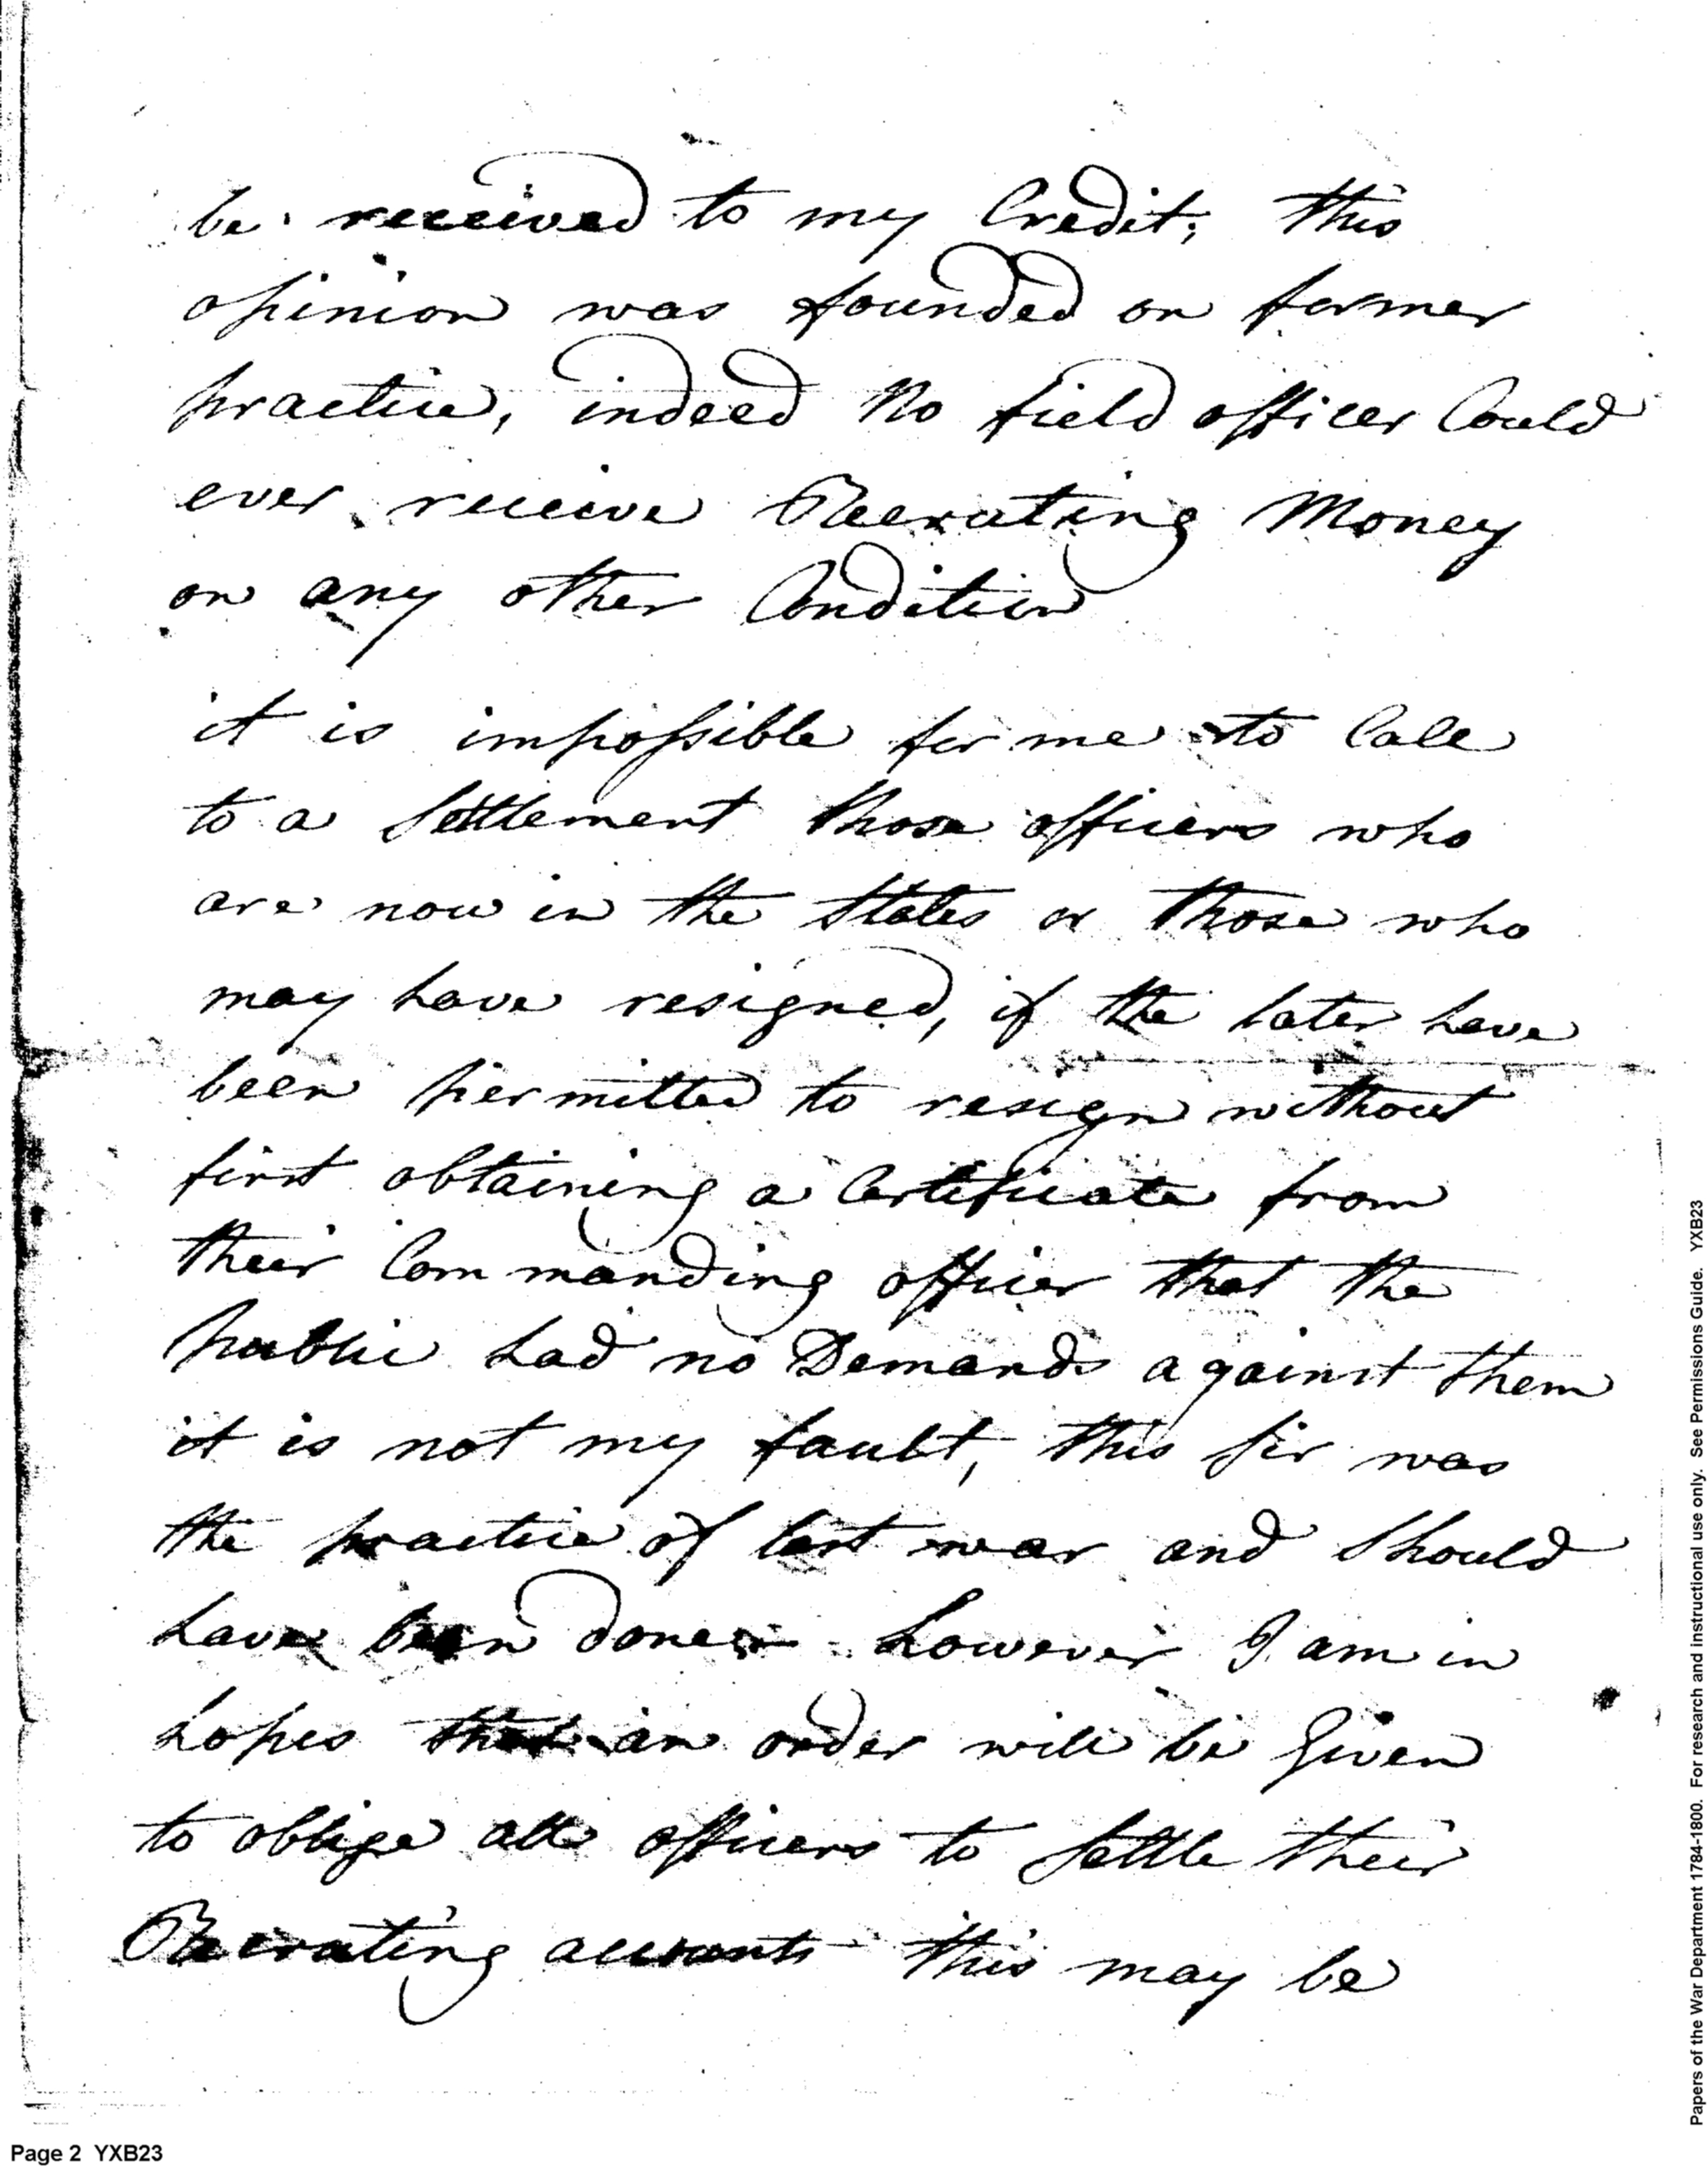 be received to my Credit; this
opinion was founded on former
practice, indeed No field officer Could
ever receive Recruting Money
on any other Condition
it is impossible for me to Call
to a Settlement those officers who
are now in the States or those who
may have resigned, if the later have
been permitted to resign without
first obtaining a Certificate from
their Commanding officer that the
public had no Demands against them
it is not my fault, this Sir was
the practice of last war and Should
have been done however I am in
hopes that an order will be Given
to oblige all officers to Settle their
Recruting accounts this may be
Page 2 YXB23
Papers of the War Department 1784-1800. For research and instructional use only. See Permissions Guide. YXB23